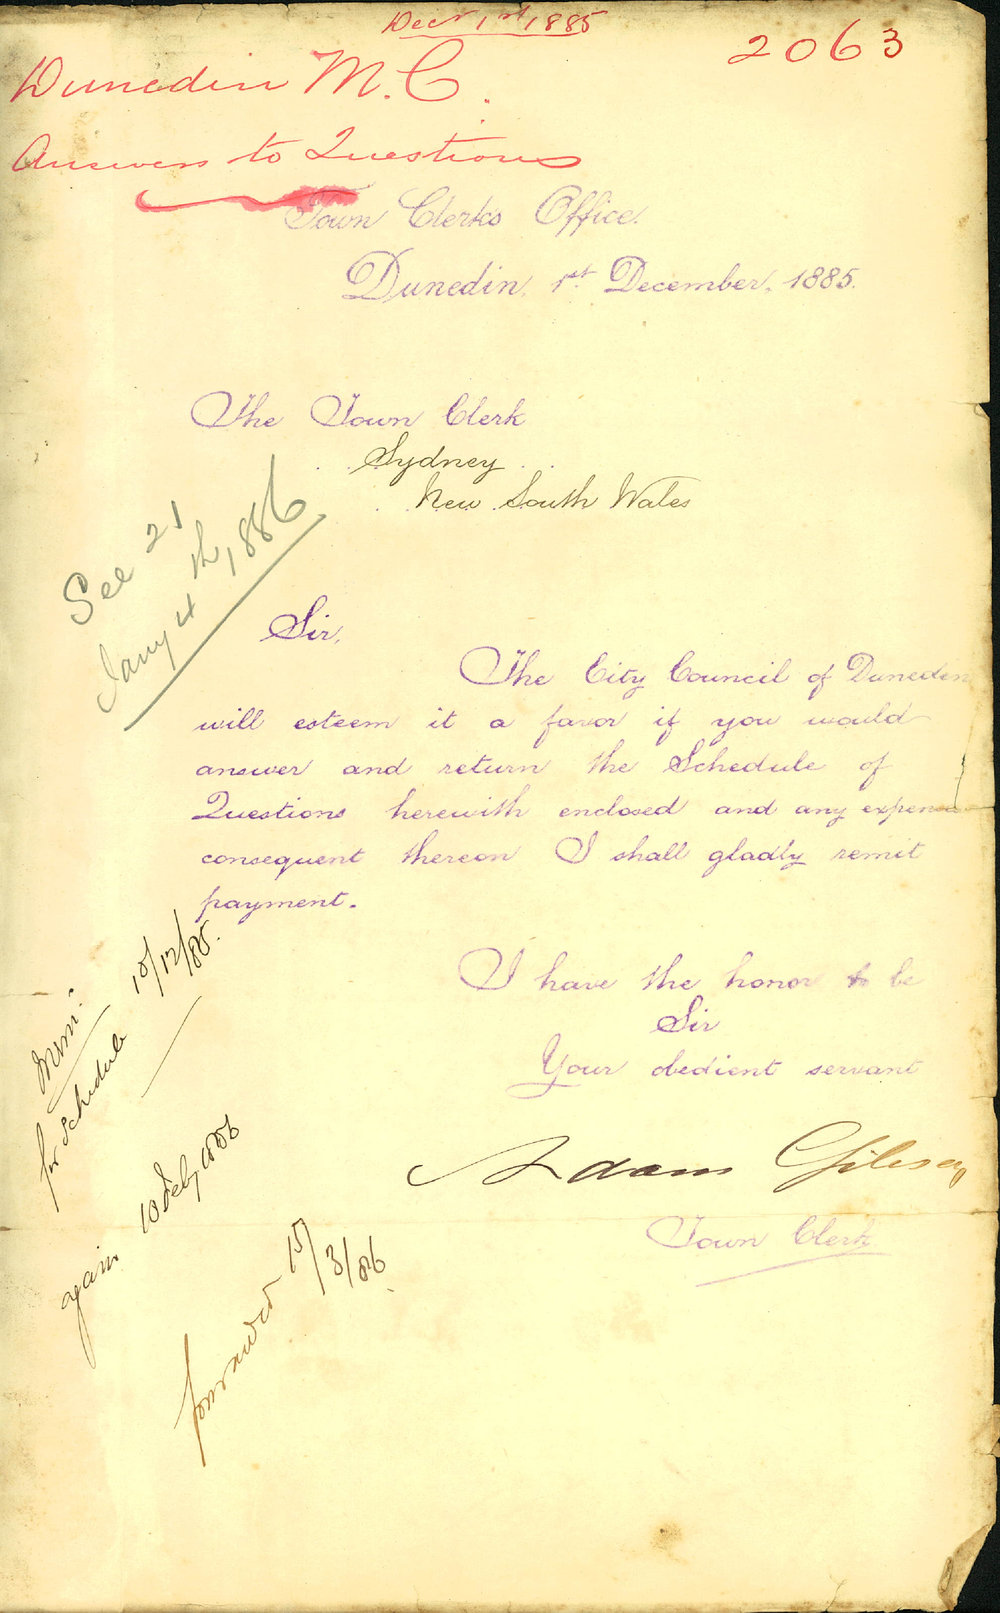 Decr 1st, 1885
2063
Dunedin M.C.
Answers to Questions
Town Clerks Office.
Dunedin, 1st December, 1885.
The Town Clerk
Sydney
New South Wales
See 21
Jany 4th, 1886
Sir,
The City Council of Dunedin
will esteem it a favor if you would
answer and return the Schedule of
Questions herewith enclosed and any expense
consequent thereon I shall gladly remit
payment.
15/12/85.
for Schedule
I have the honor to be
Sir
Your obedient servant
Adam Gibson
Town Clerk
again 10 Feby 1886
forwarded 15/3/86